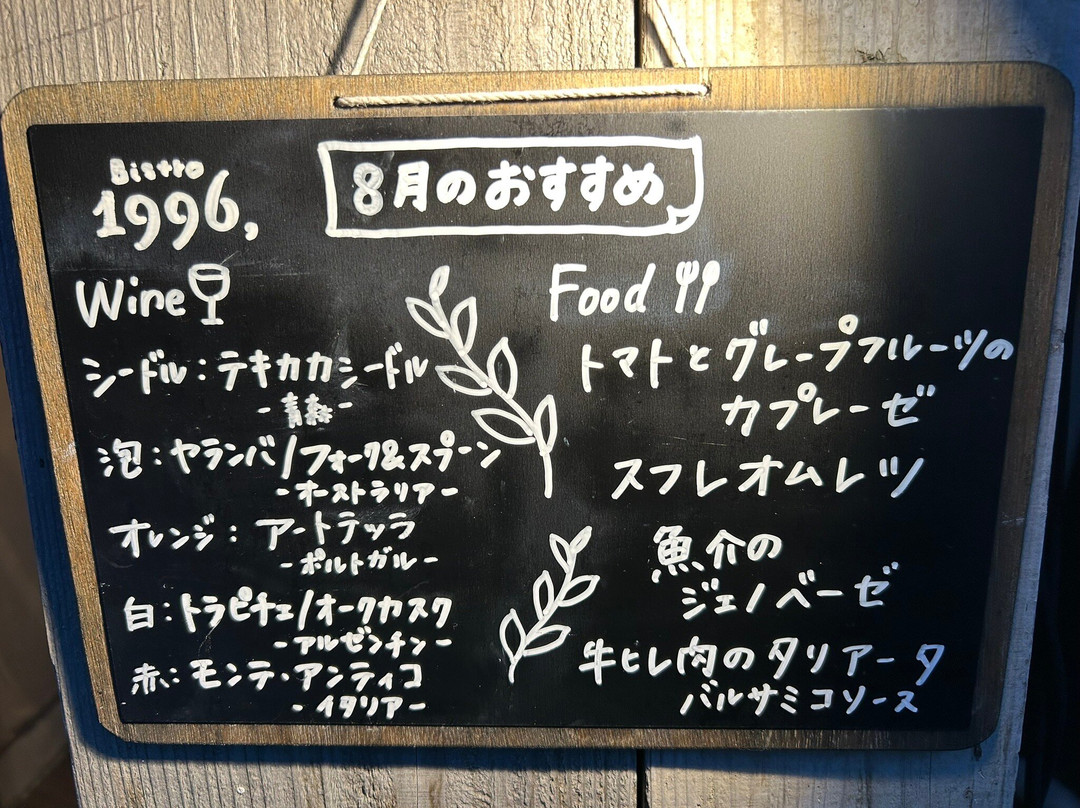 Bistro
1996,
8月のおすすめ
Wine
シードル:テキカカシードル
-青森-
泡:ヤランバ/フォーク&スプーン
-オーストラリア-
オレンジ:アートテッラ
-ポルトガル-
白:トラピチェ/オークカスク
-アルゼンチン-
赤:モンテ・アンティコ
-イタリアー
Food
トマトとグレープフルーツの
カプレーゼ
スフレオムレツ
魚介の
ジェノベーゼ
牛ヒレ肉のタリアータ
バルサミコソース